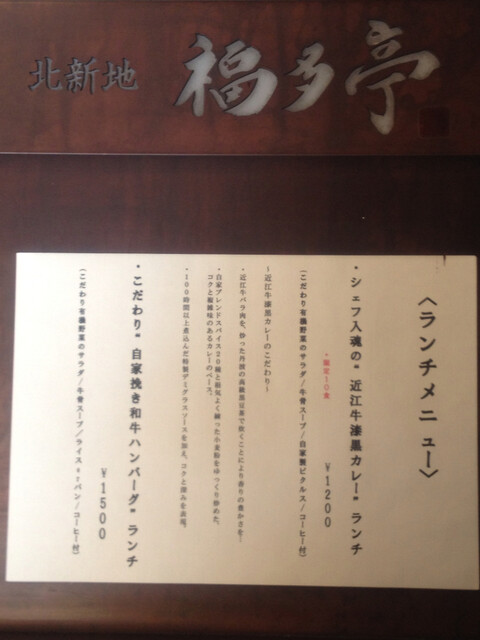 北新地 福多亭
〈ランチメニュー〉
・シェフ入魂の"近江牛漆黒カレー"ランチ
・限定10食
¥1200
(こだわり有機野菜のサラダ/牛骨スープ/自家製ピクルス/コーヒー付)
～近江牛漆黒カレーのこだわり～
・近江牛バラ肉を、炒った丹波の高級黒豆茶で炊くことにより香りの豊かさを…
・自家ブレンドスパイス20種と根気よく練った小麦粉をゆっくり炒めた、
コクと複雑味のあるカレーのベース。
・100時間以上煮込んだ特製デミグラスソースを加え、コクと深みを表現。
・こだわり"自家挽き和牛ハンバーグ"ランチ
¥1500
(こだわり有機野菜のサラダ/牛骨スープ/ライスorパン/コーヒー付)